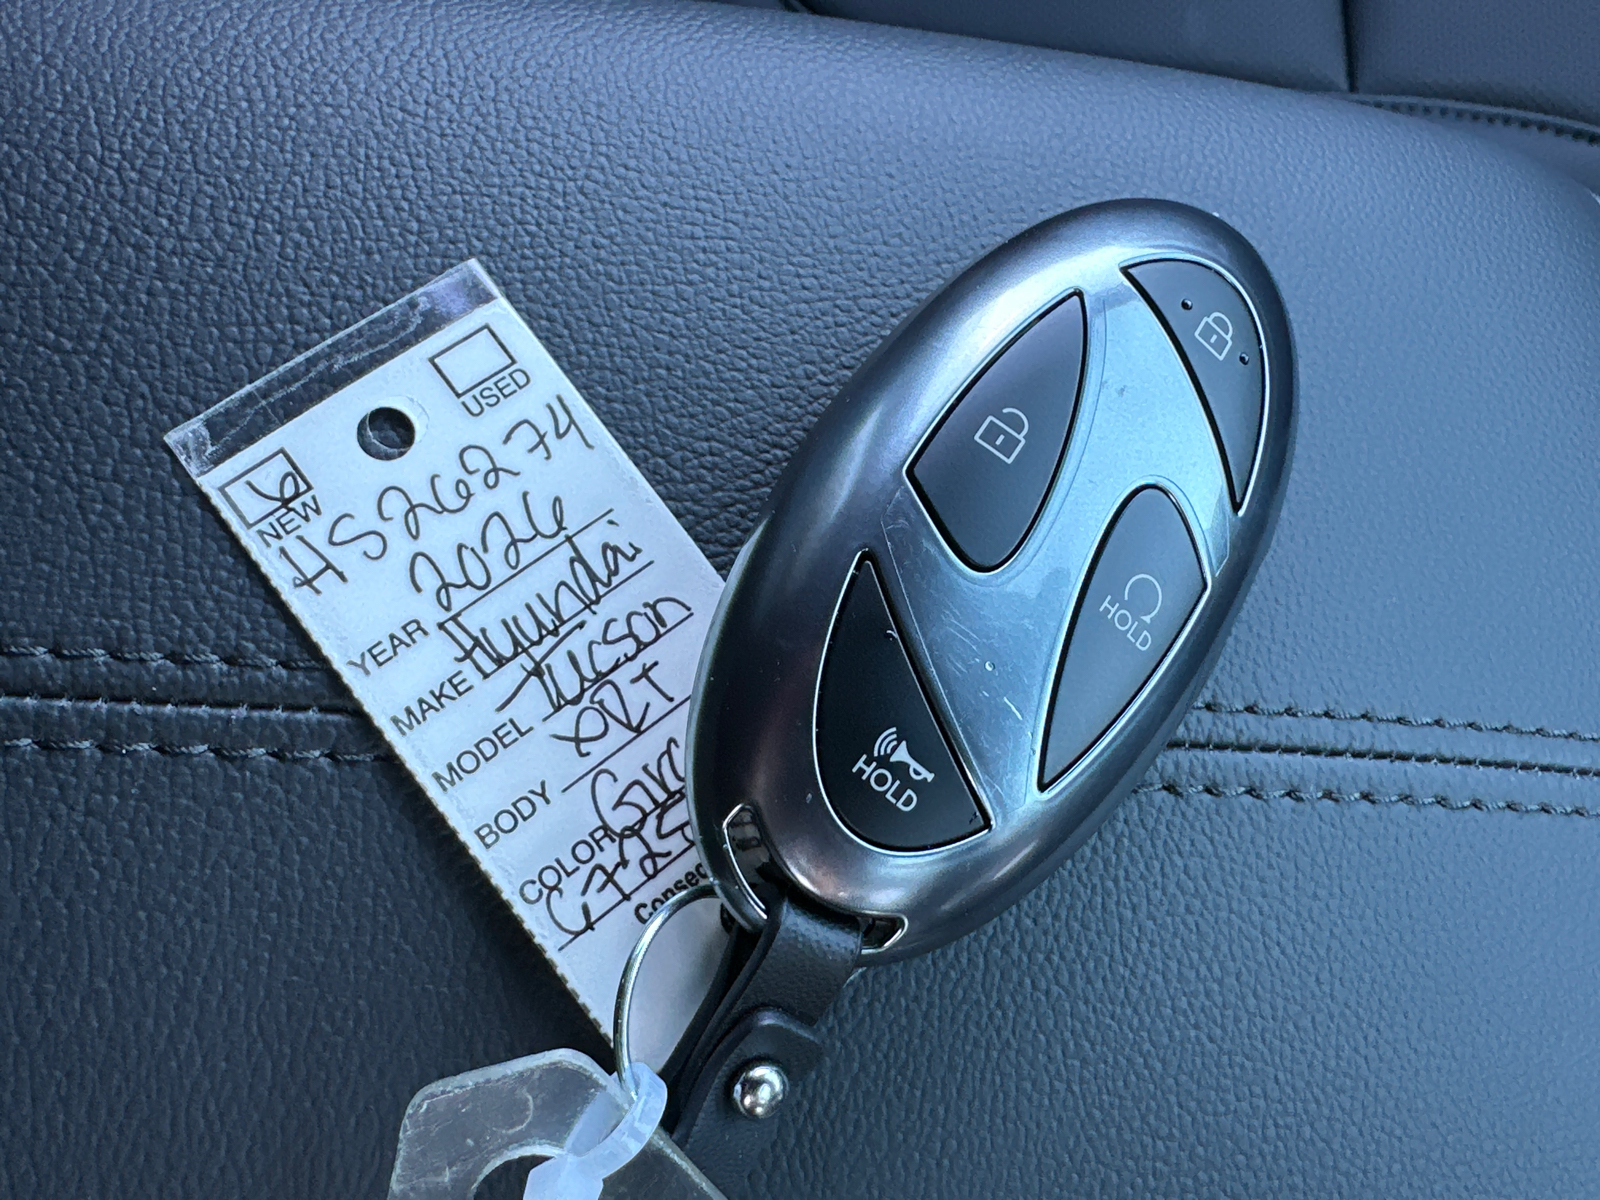 USED
NEW
HS26274
YEAR 2026
MAKE Hyundai
MODEL Tucson
BODY XRT
COLOR
C725
HOLD
HOLD